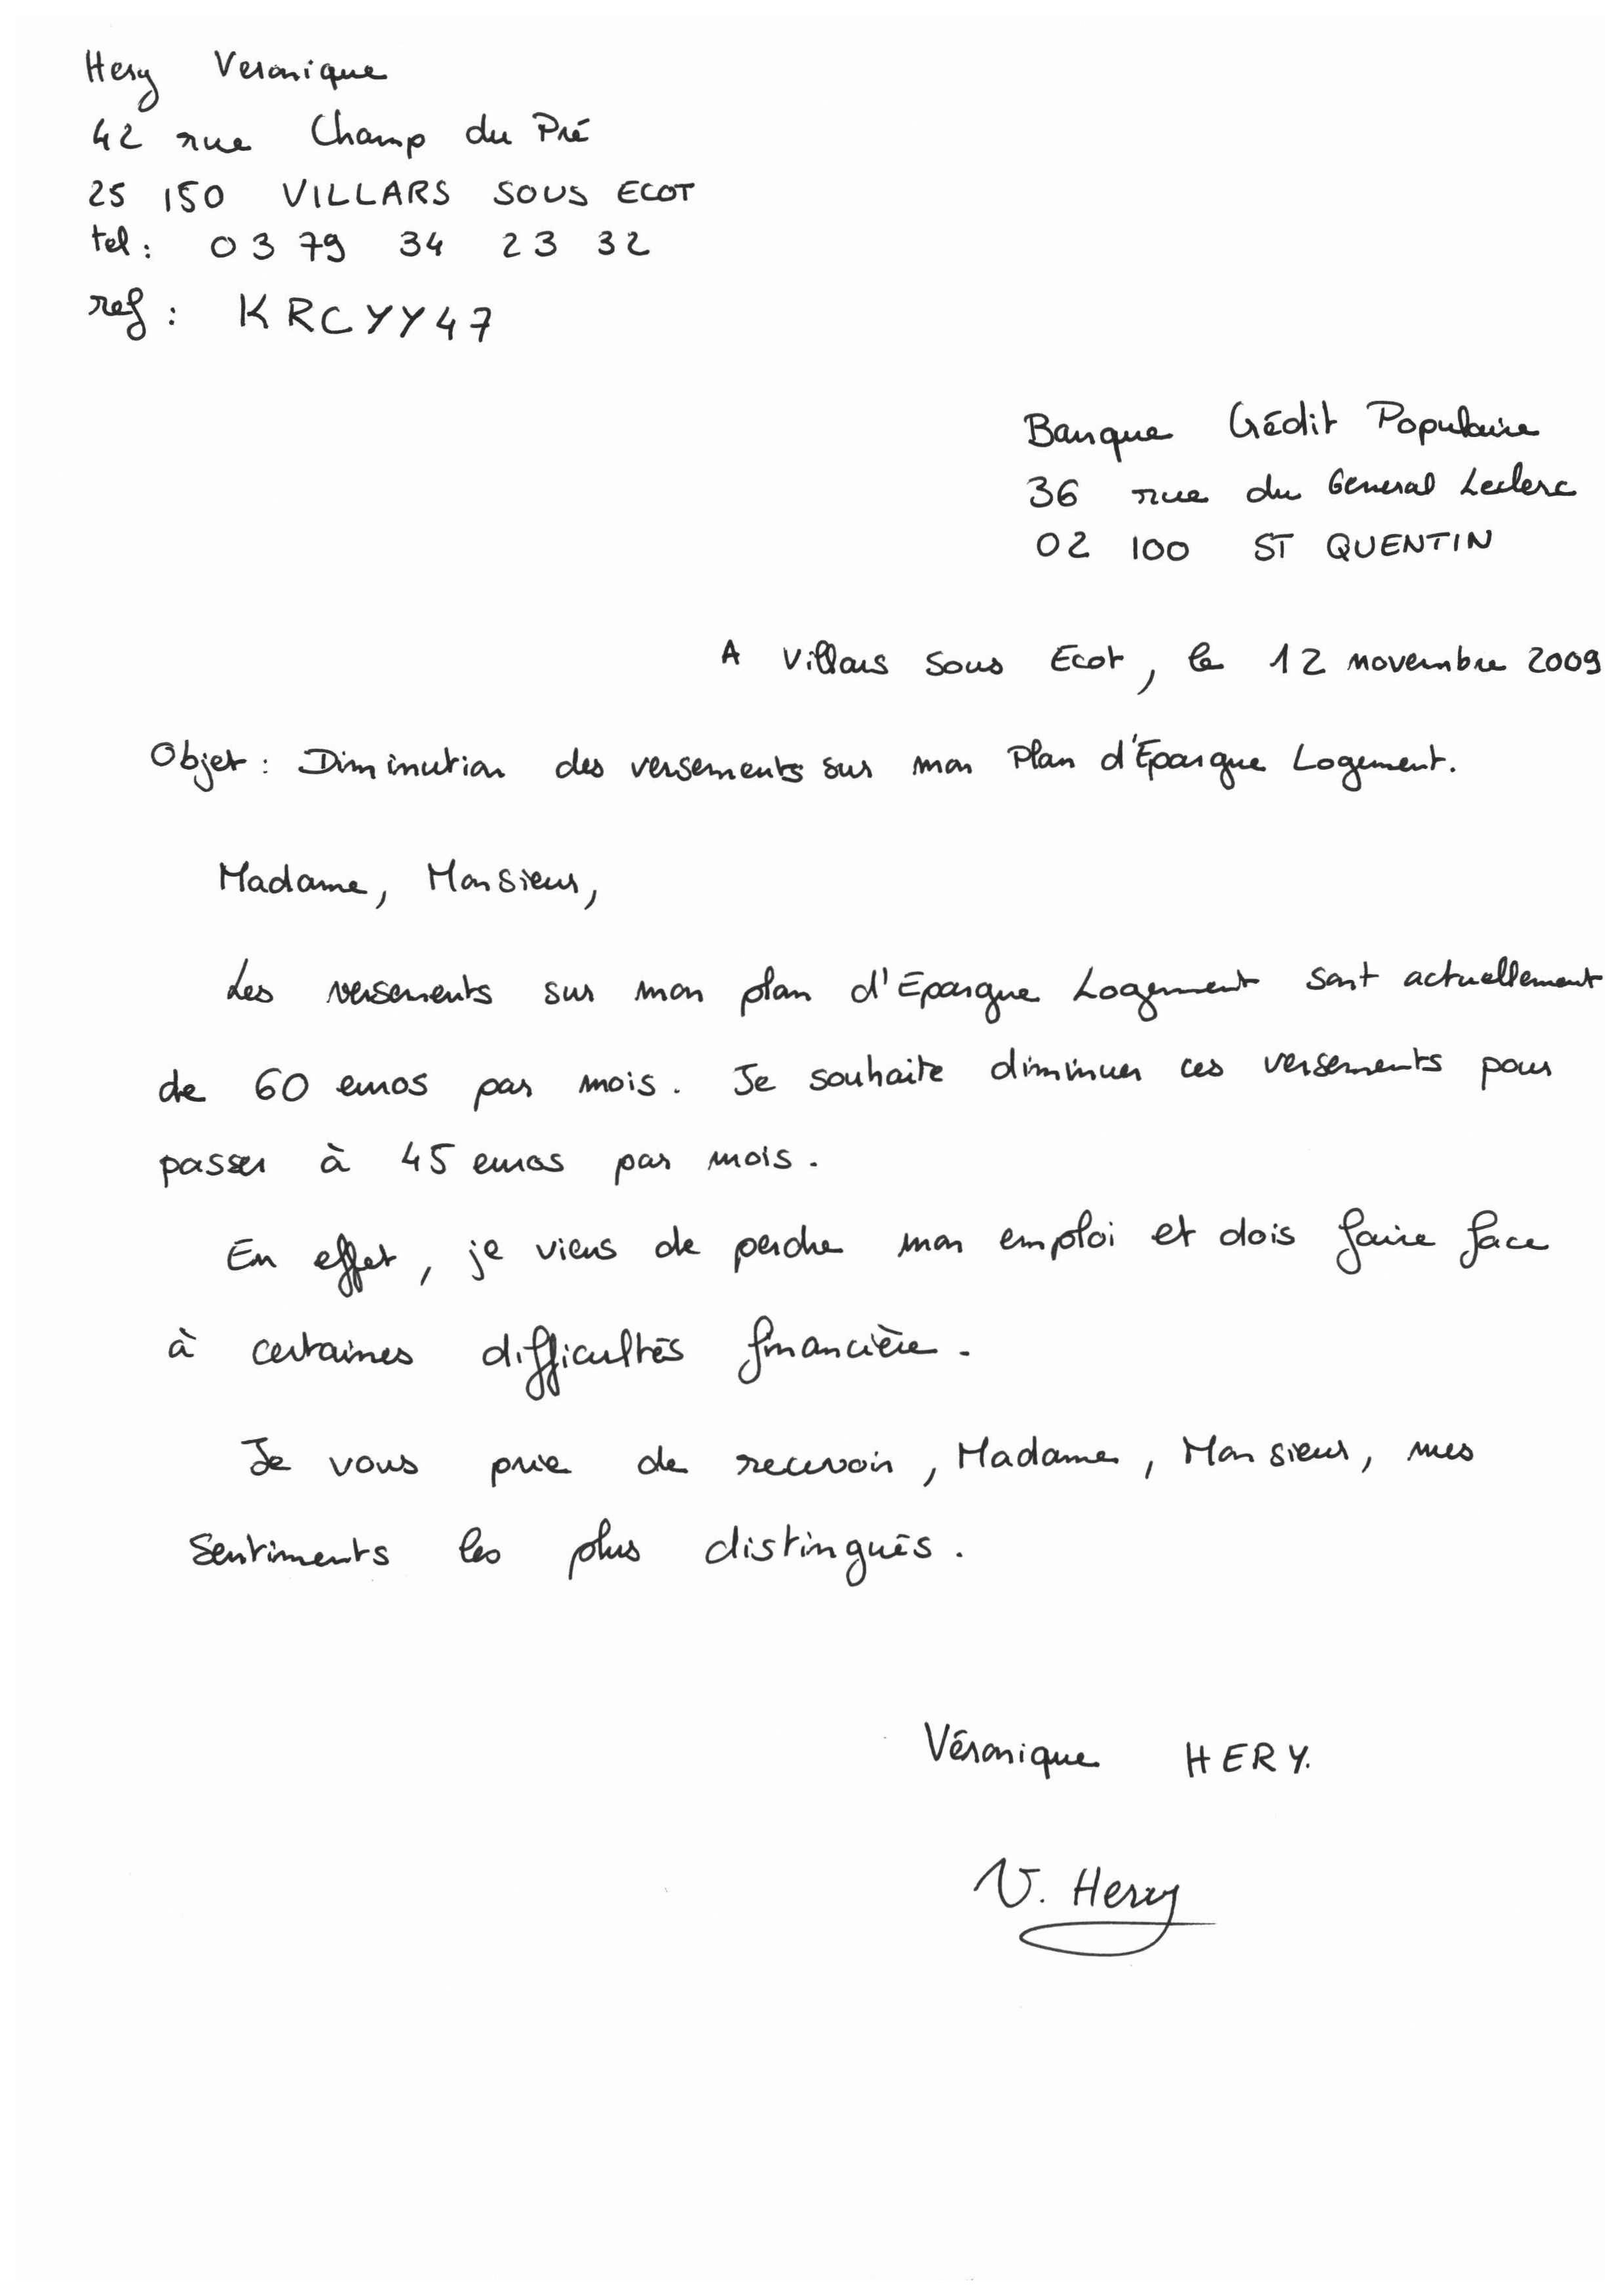 Hery Veronique
42 rue Champ du Pré
25 150 VILLARS SOUS ECOT
tel : 03 79 34 23 32
ref : KRCYY47
Banque Crédit Populaire
36 rue du General Leclerc
02 100 ST QUENTIN
A Villars sous Ecot, le 12 novembre 2009
Objet : Diminution des versements sur mon Plan d'Epargne Logement.
Madame, Monsieur,
Les versements sur mon plan d'Epargne Logement sont actuellement
de 60 euros par mois. Je souhaite diminuer ces versements pour
passer à 45 euros par mois.
En effet, je viens de perdre mon emploi et dois faire face
à certaines difficultés financière.
Je vous prie de recevoir, Madame, Monsieur, mes
sentiments les plus distingués.
Véronique HERY.
V. Hery